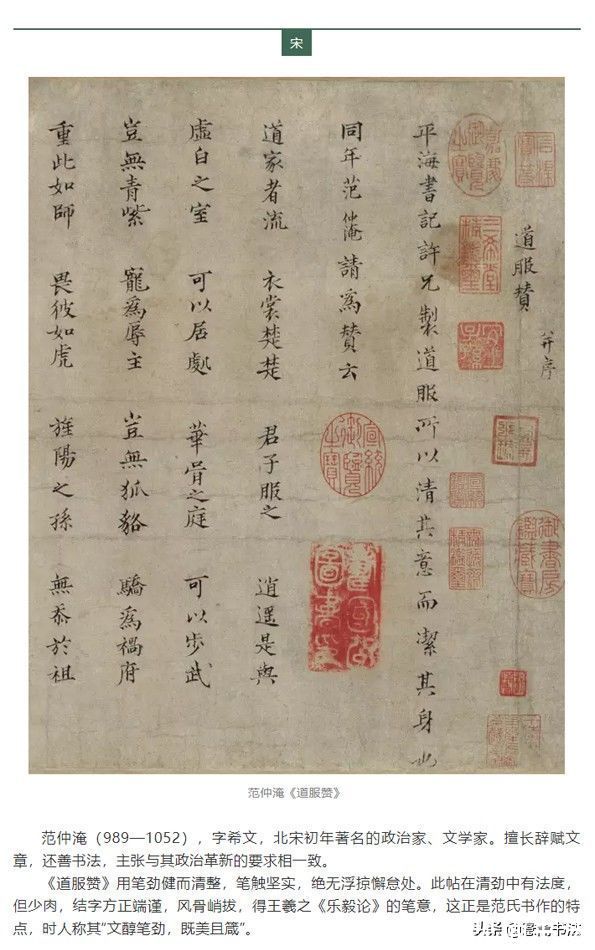 宋
道服赞 并序
平海書記許兄製道服所以清其意而潔其身也
同年范仲淹請為赞云
道家者流 衣裳楚楚 君子服之 逍遥是與
虛白之室 可以居處 華胥之庭 可以步武
豈無青紫 寵為辱主 豈無狐貉 驕為禍府
重此如師 畏彼如虎 旌陽之孫 無忝於祖
范仲淹《道服赞》
范仲淹（989—1052），字希文，北宋初年著名的政治家、文学家。擅长辞赋文
章，还善书法，主张与其政治革新的要求相一致。
《道服赞》用笔劲健而清整，笔触坚实，绝无浮掠懈怠处。此帖在清劲中有法度，
但少肉，结字方正端谨，风骨峭拔，得王羲之《乐毅论》的笔意，这正是范氏书作的特
点，时人称其“文醇笔劲，既美且箴”。
宣統御覽之寶
嘉慶御覽之寶
三希堂精鑑璽
宜子孫
御書房鑑藏寶